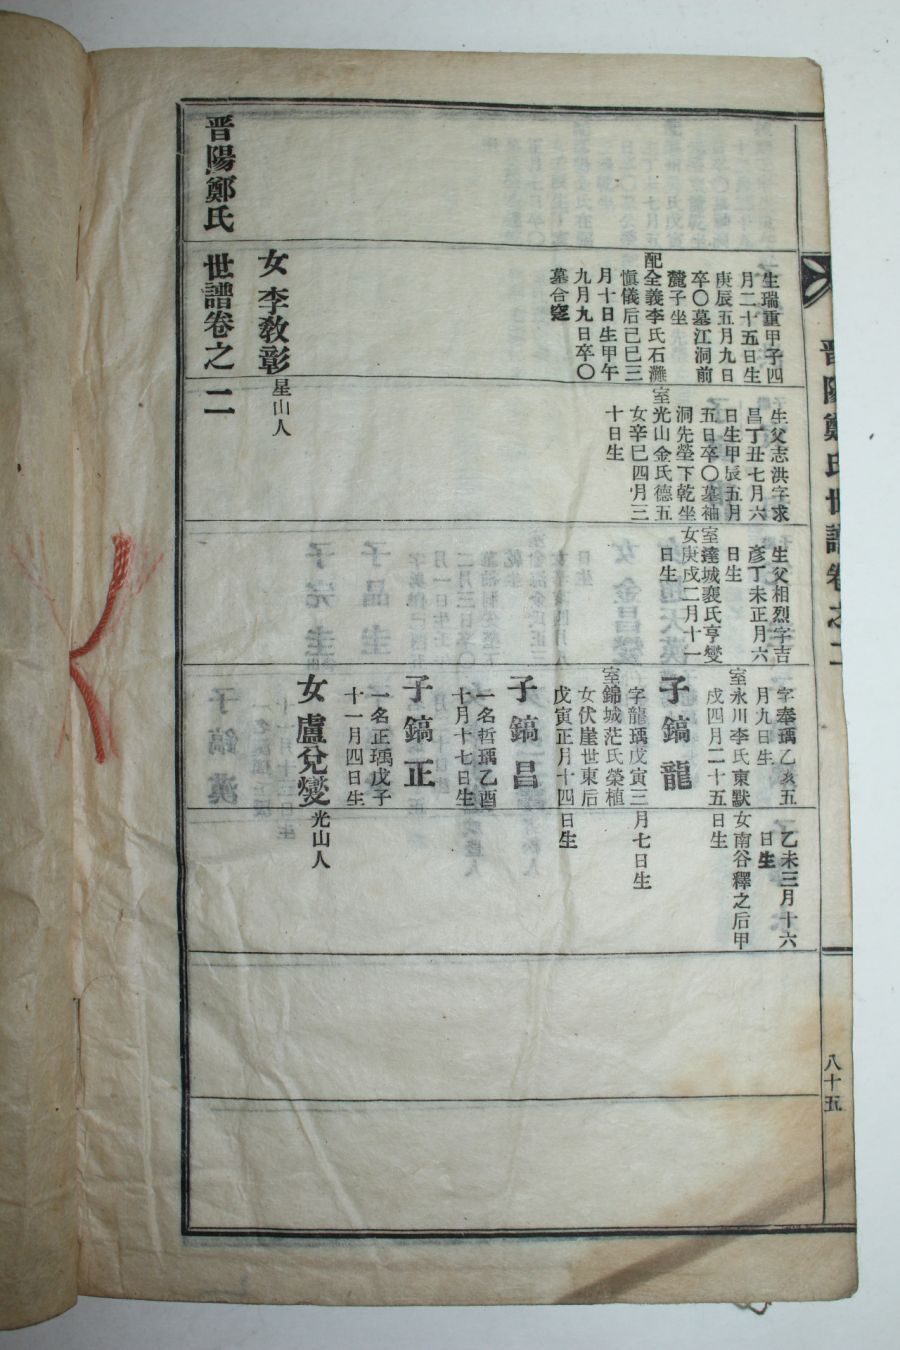 晋陽鄭氏世譜卷之二
八十五
生瑞重甲子四
月二十五日生
庚辰五月九日
卒〇墓江洞前
麓子坐
配全義李氏石灘
愼儀后己巳三
月十日生甲午
九月九日卒〇
墓合窆
女 李敎彰
星山人
生父志洪字求
昌丁丑七月六
日生甲辰五月
五日卒〇墓袖
洞先塋下乾坐
室光山金氏德五
女辛巳四月三
十日生
生父相烈字吉
彥丁未正月六
日生
室達城裵氏亨燮
女庚戌二月十一
日生
字奉瑀乙亥五
月九日生
室永川李氏東默女南谷釋之后甲
戌四月二十五日生
乙未三月十六
日生
子 鎬龍
字龍瑀戊寅三月七日生
室錦城范氏榮植
女伏崖世東后
戊寅正月十四日生
子 鎬昌
一名哲瑀乙酉
十月十七日生
子 鎬正
一名正瑀戊子
十一月四日生
女 盧兌燮
光山人
晋陽鄭氏 世譜卷之 二